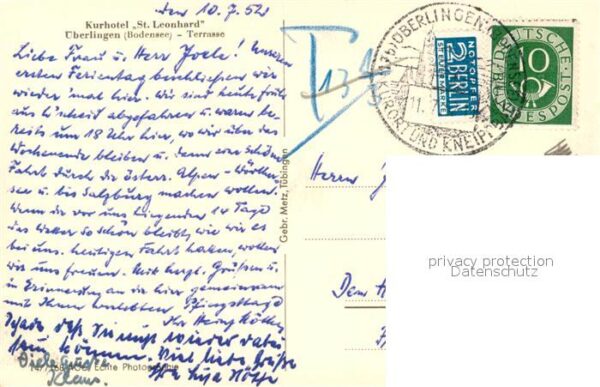 den 10.7.52
Kurhotel „St. Leonhard"
Überlingen (Bodensee) – Terrasse
Liebe Frau u. Herr Joele! Unseren
ersten Ferientag beschliessen wir
wieder 'mal hier. Wir sind heute früh
aus abgefahren u. waren be-
reits um 18 Uhr hier, wo wir über das
Wochenende bleiben u. dann eine schöne
Fahrt durch die österr. Alpen – Wörther-
see u. bis Salzburg machen wollen.
Wenn die vor uns liegenden 14 Tage
das Wetter so schön bleibt, wie wir es
bei uns. heutigen Fahrt hatten, wollen
wir uns freuen. Mit herzl. Grüßen u.
in Erinnerung an die hier gemeinsam
mit Ihnen verlebten Pfingsttage
Ihr Heinz
Schade daß Sie nicht wieder dabei
sein können. Viel liebe Grüße
Ihre
Viele Grüsse
Klaus.
Echte Photographie
Gebr. Metz, Tübingen
T
ÜBERLINGEN
11.7
KURORT UND KNEIPP
NOTOPFER
2 BERLIN
STEUERMARKE
DEUTSCHE
BUNDESPOST
10
Herrn
privacy protection
Datenschutz